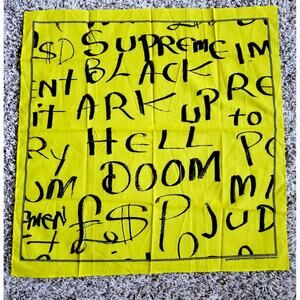 $D $UPREME IM
BLACK
ENT ARK UP RE
it HELL to
Ry DOOM PO
UM MI
EMEN £$P JUD